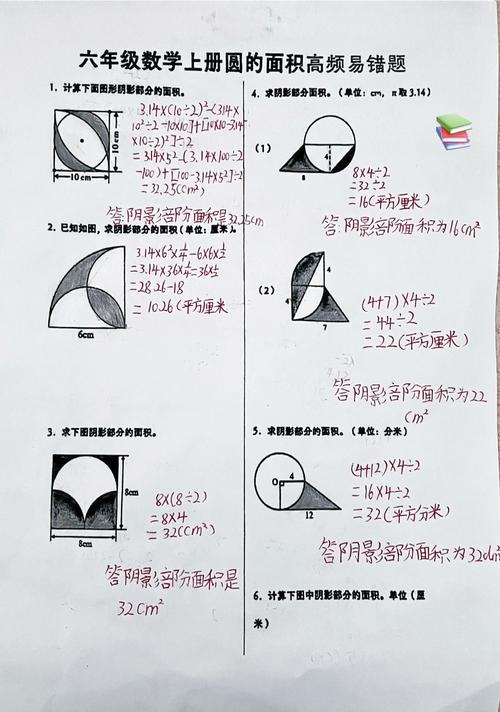 六年级数学上册圆的面积高频易错题
1. 计算下面图形阴影部分的面积。
10cm
10cm
3.14×(10÷2)²-(3.14×
10²÷2-10×10)+[10×10-3.14
×(10÷2)²]÷2
=3.14×5²-(3.14×100÷2
-100)+[100-3.14×5²]÷2
=32.25(cm²)
答阴影部分面积是32.25cm
2. 已知如图，求阴影部分的面积（单位：厘米）。
6cm
3.14×6²×¼-6×6×½
=3.14×36×¼-36×½
=28.26-18
=10.26(平方厘米)
3. 求下图阴影部分的面积。
8cm
8cm
8×(8÷2)
=8×4
=32(cm²)
答阴影部分面积是
32cm²
4. 求阴影部分面积。（单位：cm，π取3.14）
(1)
4
8×4÷2
=32÷2
=16(平方厘米)
答阴影部分面积为16cm²
(2)
4
4
7
(4+7)×4÷2
=44÷2
=22(平方厘米)
答阴影部分面积为22
cm²
5. 求阴影部分的面积。（单位：分米）
O
4
12
(4+12)×4÷2
=16×4÷2
=32(平方分米)
答阴影部分面积为32dm²
6. 计算图中阴影部分的面积。单位（厘
米）